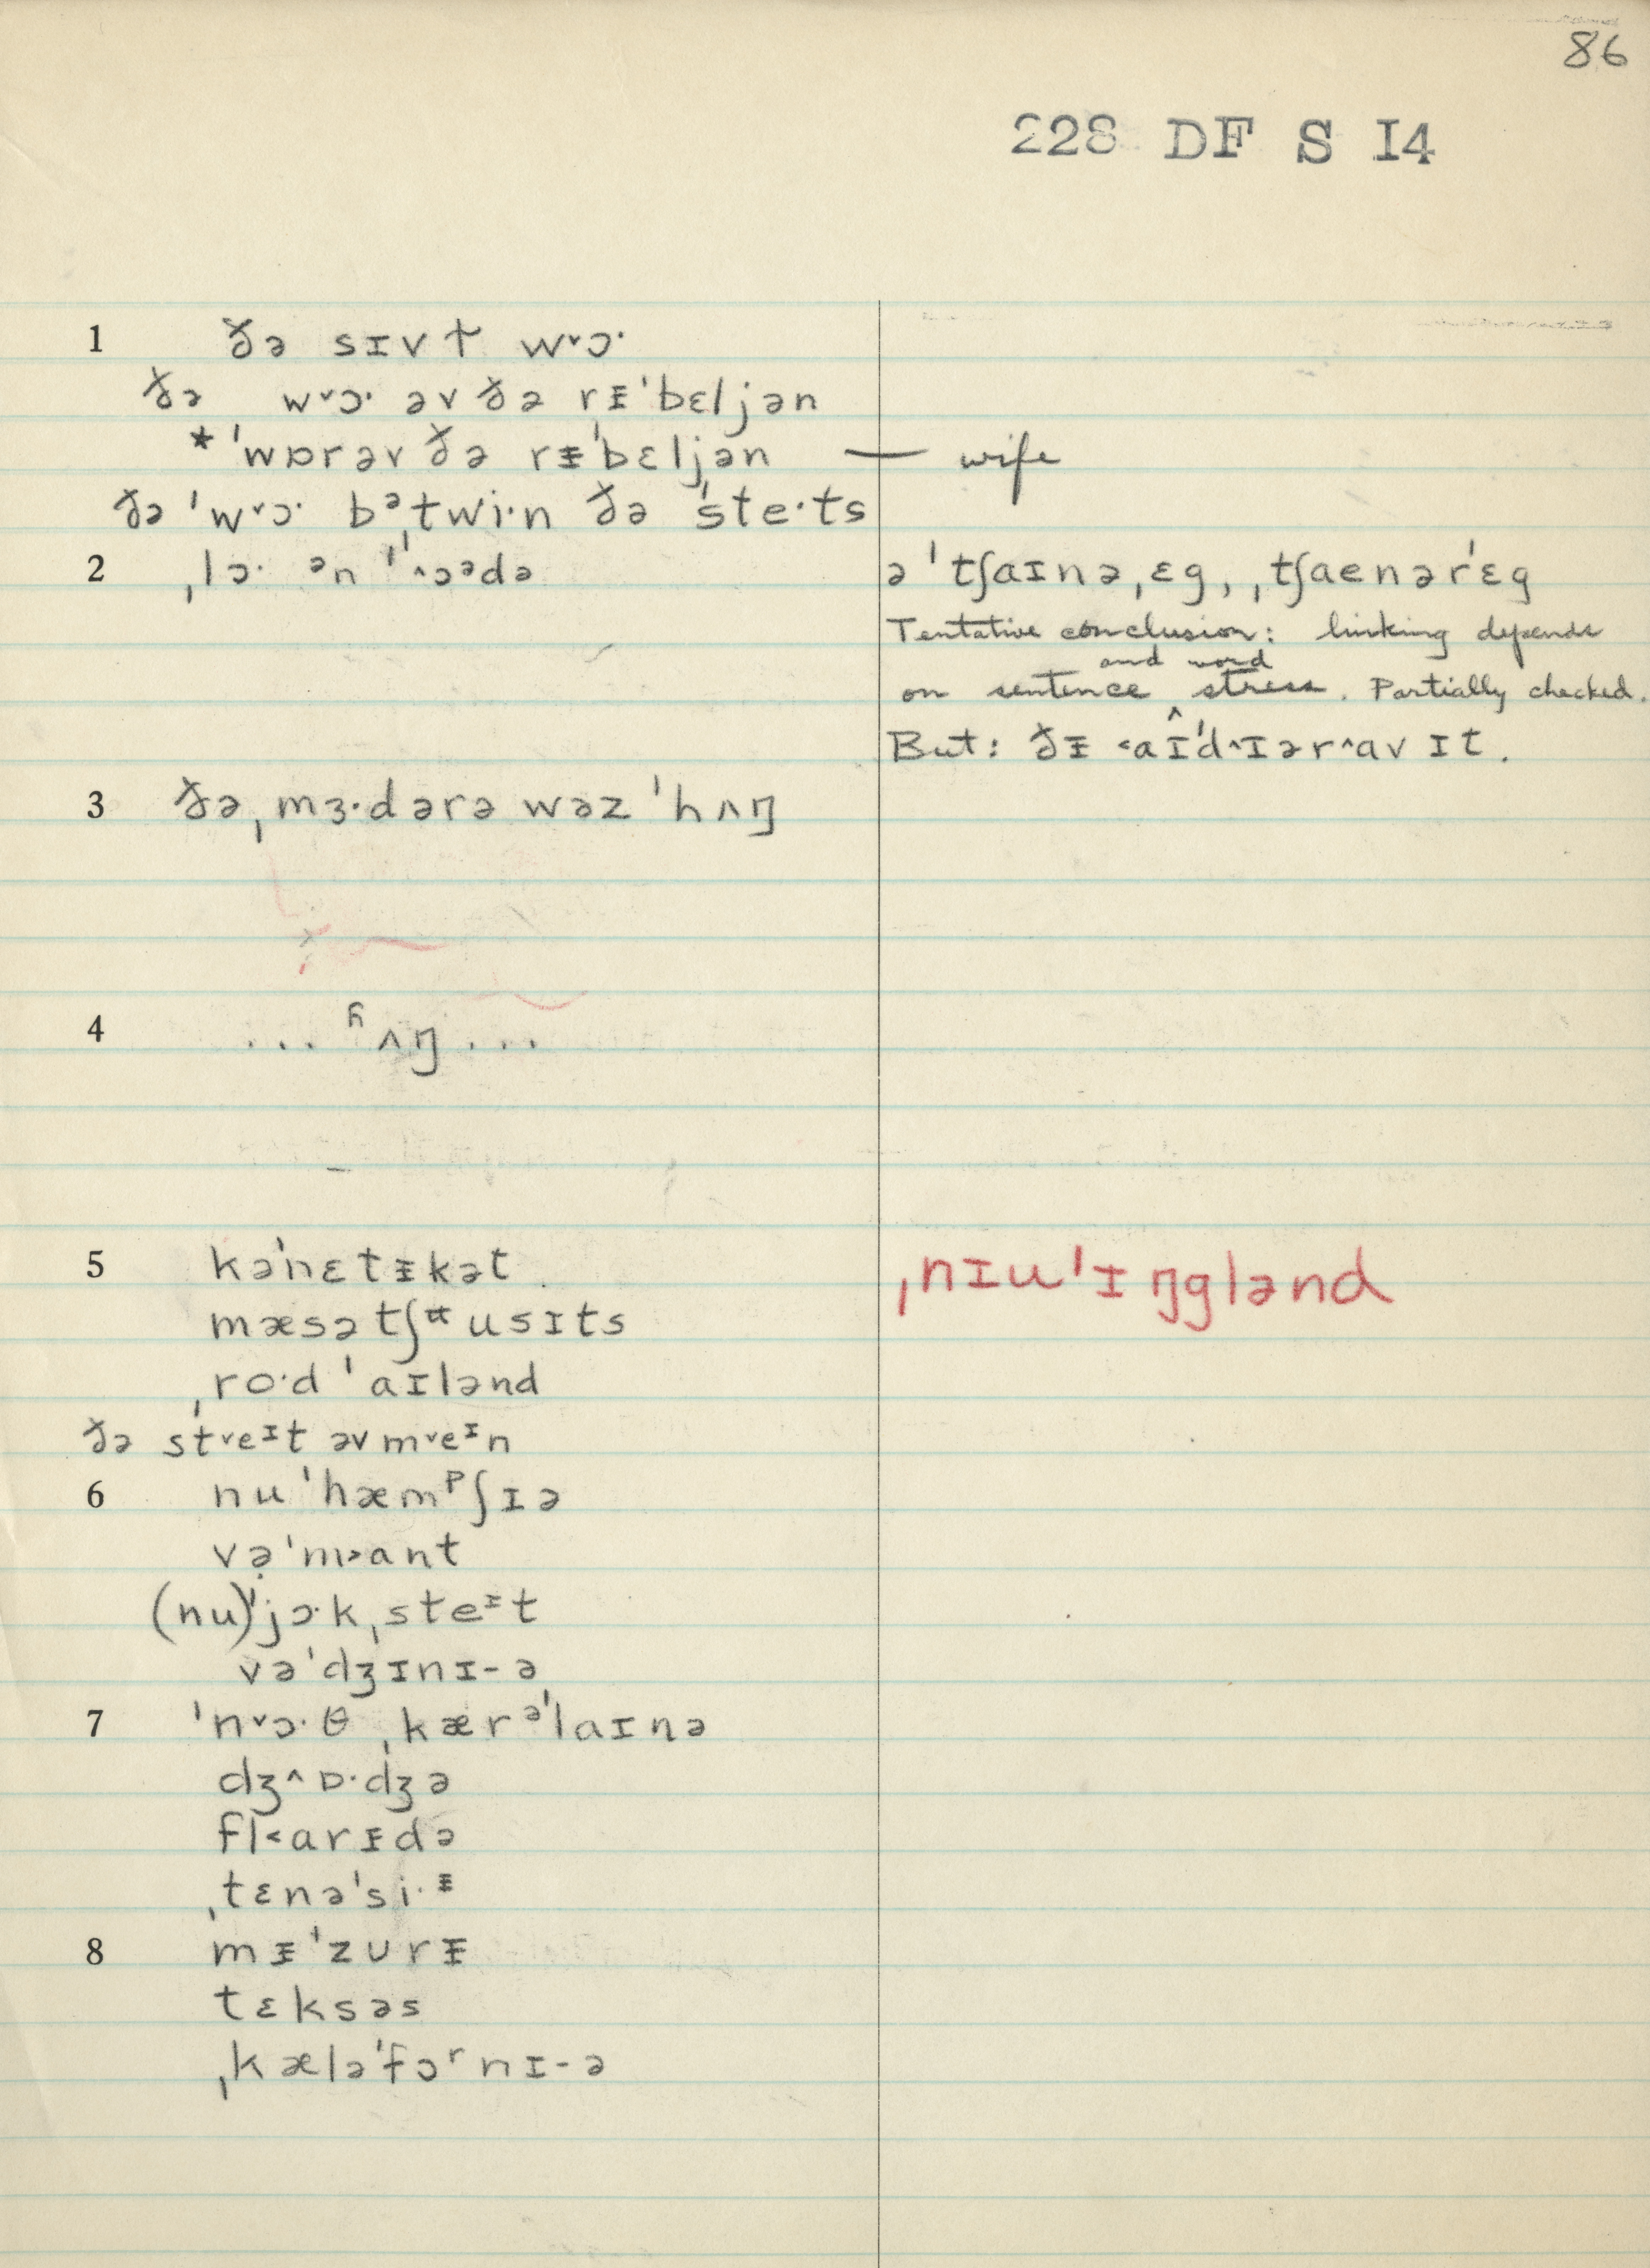 86
228 DF S I4
1 ðə sɪvɫ w˅ɔ·
ðə w˅ɔ· əv ðə rᵻˈbɛljən
*ˈwɒrəv ðə rᵻˈbɛljən — wife
ðə ˈw˅ɔ· bᵊˌtwi·n ðə ˈste·ts
2 ˌlɔ· ᵊn ˈ˄ɔᵊdə
ə ˈtʃaɪnəˌɛg, ˌtʃaenərˈɛg
Tentative conclusion: linking depends
on sentence and word stress. Partially checked.
But: ðᵻ ˂aɪˈd˄ɪər˄av ɪt.
3 ðəˌmɜ·dərə wəz ˈhʌŋ
4 ... ʱʌŋ ...
5 kəˈnɛtᵻkət
mæsətʃᵚusɪts
ˌro·d ˈaɪlənd
ðə st˅eᶦt əv m˅eᶦn
ˌnɪuˈɪŋglənd
6 nuˈhæmᵖʃɪə
vəˈm˃ant
(nu)ˈjɔ·kˌsteᶦt
vəˈdʒɪnɪ-ə
7 ˈn˅ɔ·θ ˌkærᵊˈlaɪnə
dʒ˄ɒ·dʒə
fl˂arᵻdə
ˌtɛnəˈsi·ᵻ
8 mᵻˈzʊrᵻ
tɛksəs
ˌkæləˈfɔʳnɪ-ə